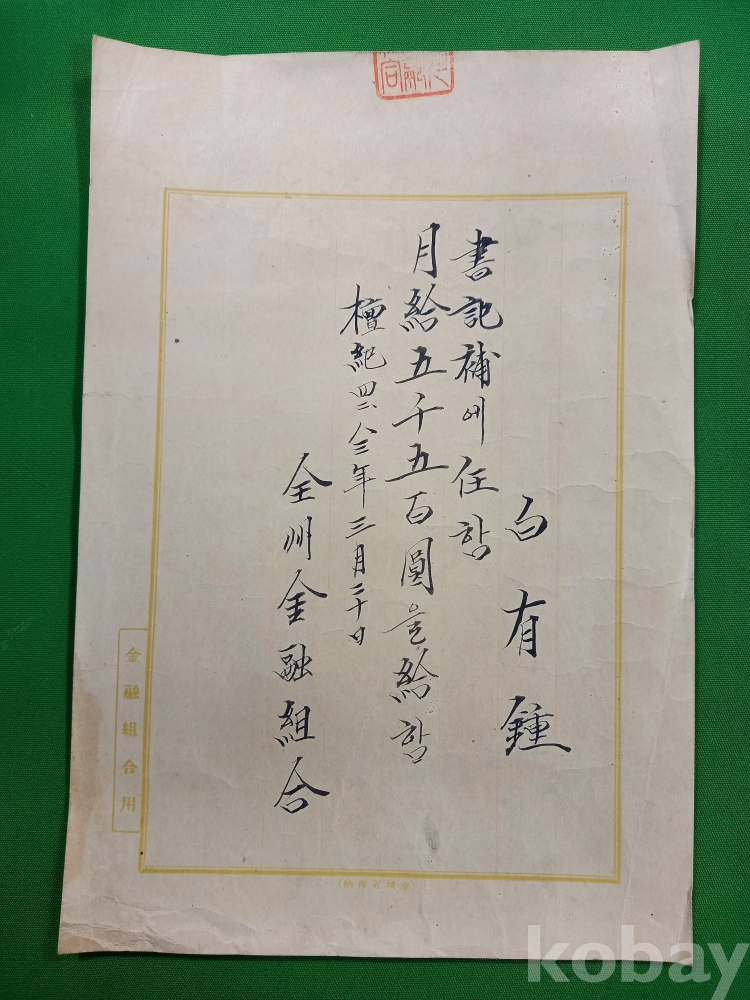 白有鍾
書記補에任함
月給五千五百圓을給함
檀紀四二八三年三月二十日
全州金融組合
金融組合用
kobay